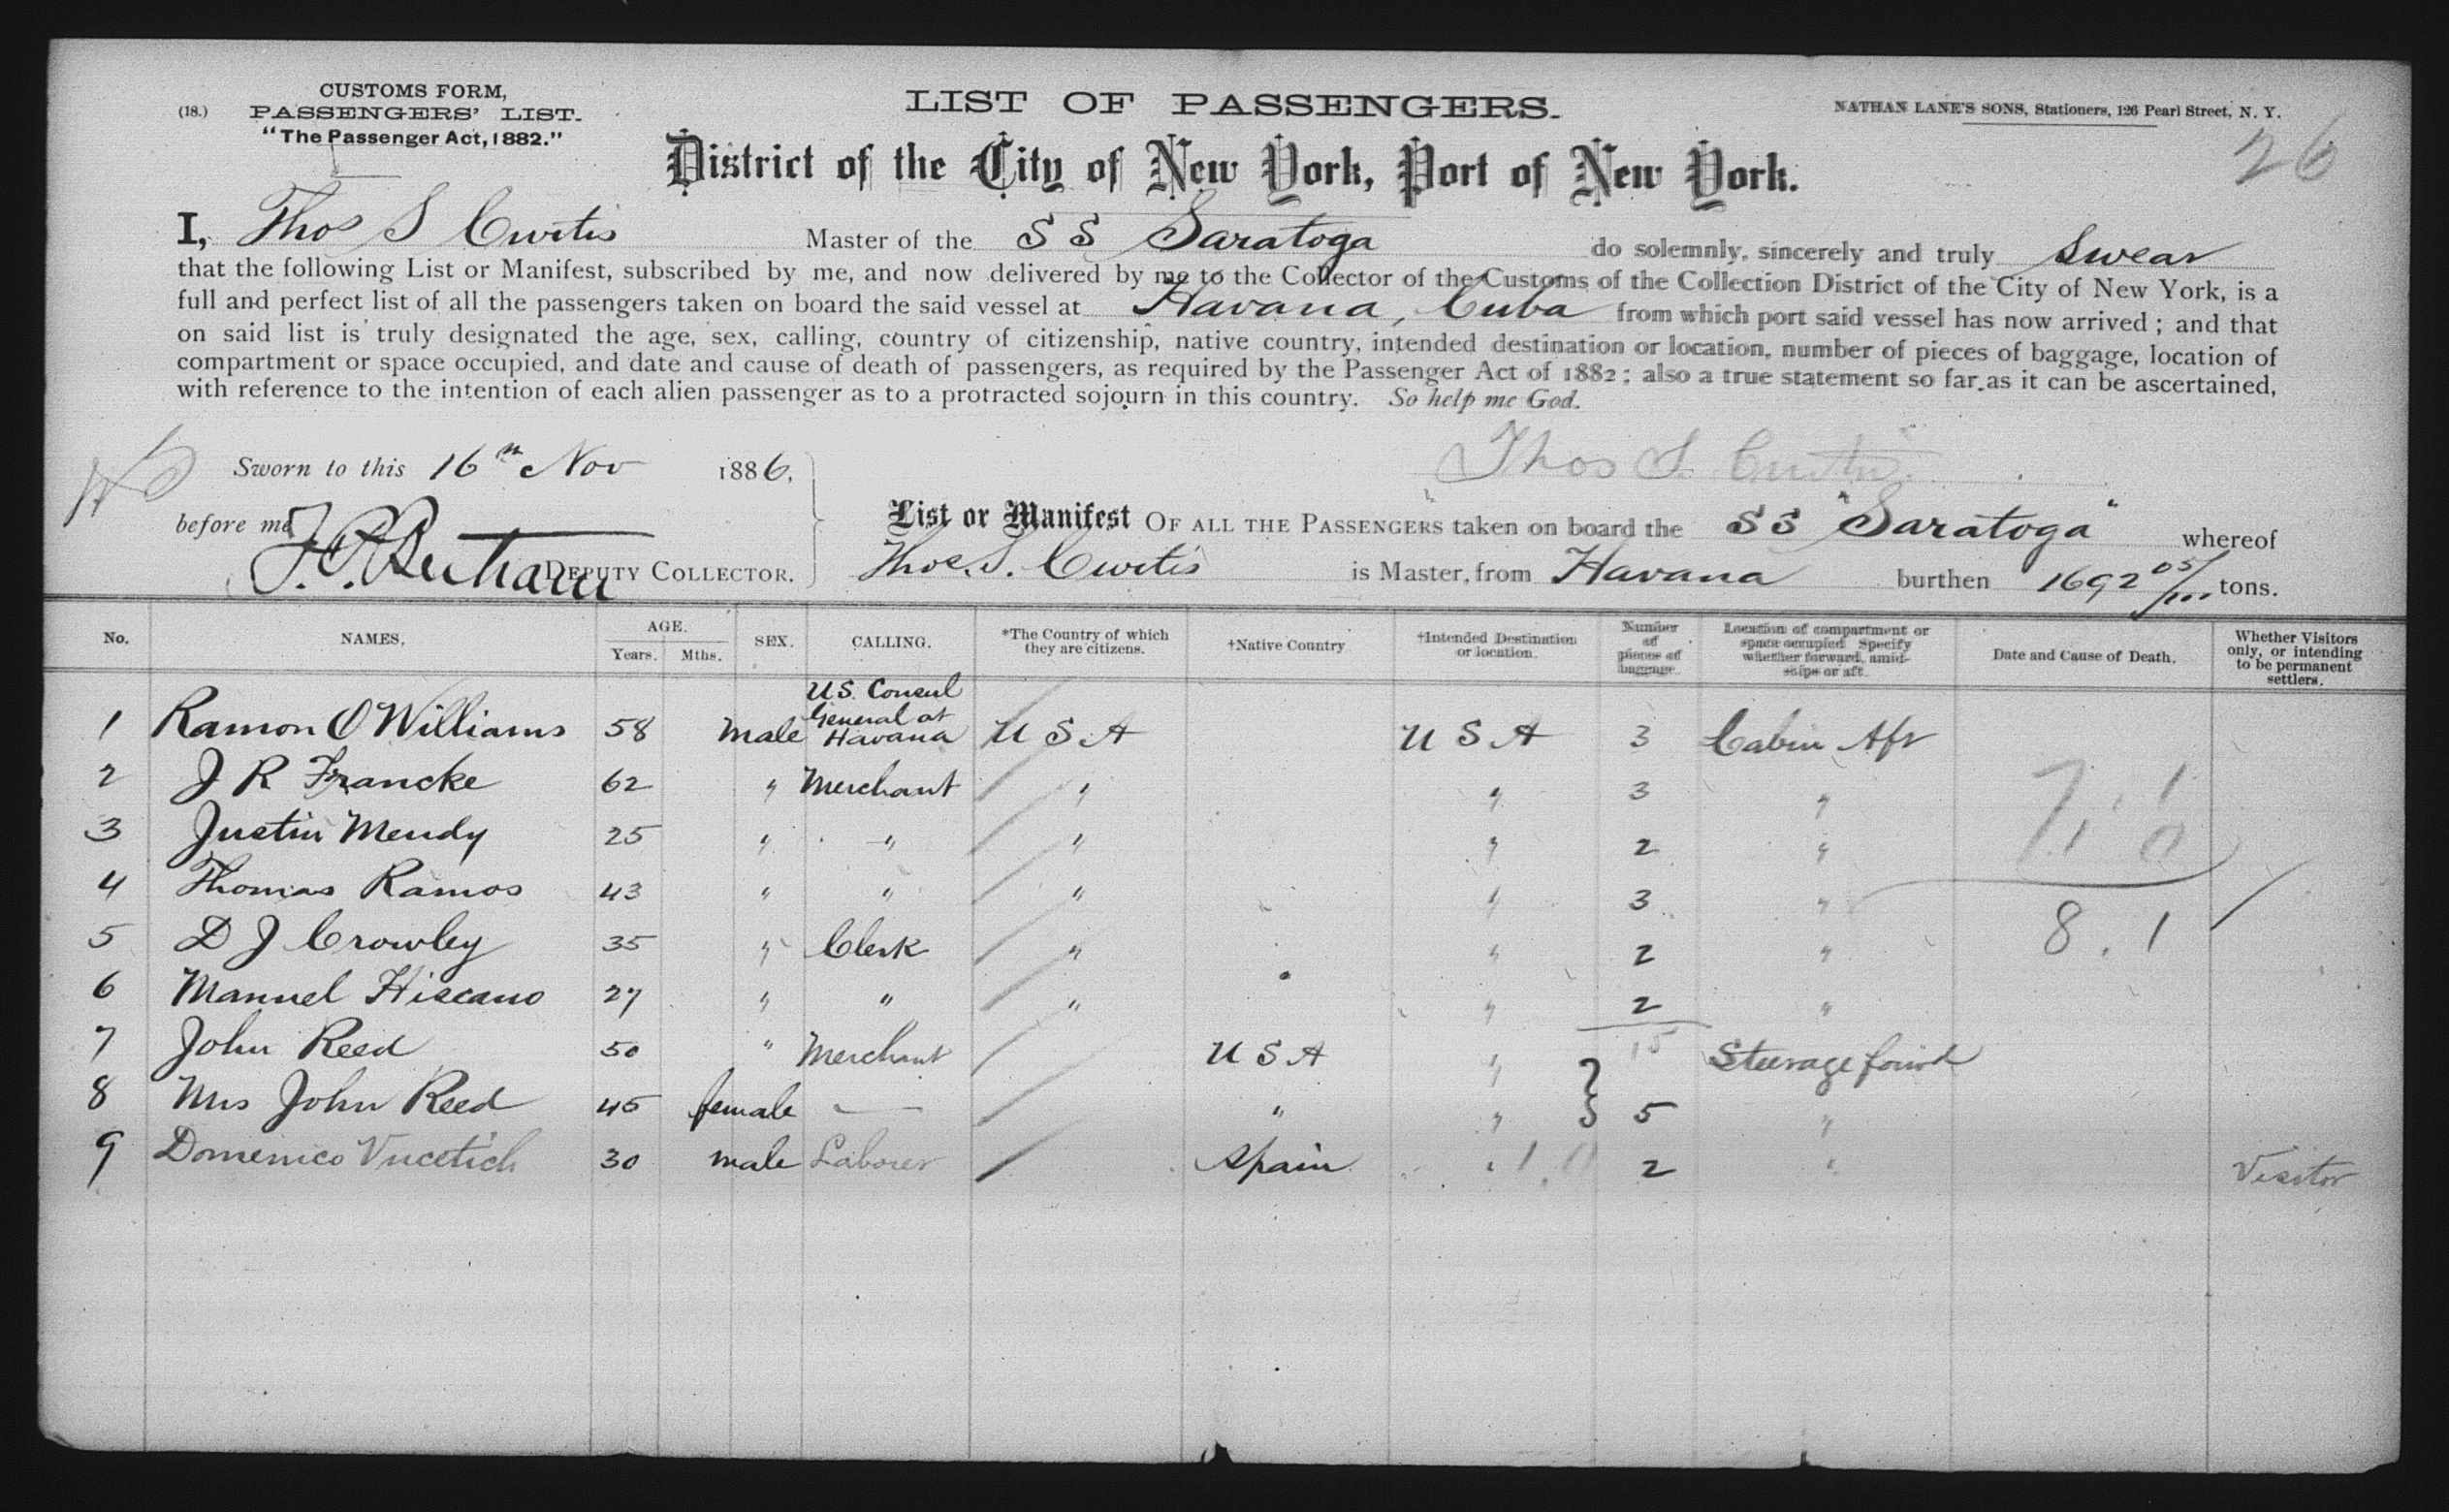 CUSTOMS FORM,
(18.) PASSENGERS' LIST.
"The Passenger Act, 1882."
LIST OF PASSENGERS.
NATHAN LANE'S SONS, Stationers, 126 Pearl Street, N. Y.
26
District of the City of New York, Port of New York.
I, Thos S Curtis Master of the S S Saratoga do solemnly, sincerely and truly swear
that the following List or Manifest, subscribed by me, and now delivered by me to the Collector of the Customs of the Collection District of the City of New York, is a
full and perfect list of all the passengers taken on board the said vessel at Havana, Cuba from which port said vessel has now arrived; and that
on said list is truly designated the age, sex, calling, country of citizenship, native country, intended destination or location, number of pieces of baggage, location of
compartment or space occupied, and date and cause of death of passengers, as required by the Passenger Act of 1882; also a true statement so far as it can be ascertained,
with reference to the intention of each alien passenger as to a protracted sojourn in this country. So help me God.
Sworn to this 16th Nov 1886, Thos S. Curtis
before me
DEPUTY COLLECTOR.
List or Manifest OF ALL THE PASSENGERS taken on board the SS "Saratoga" whereof
Thos. S. Curtis is Master, from Havana burthen 1692 05/100 tons.
No. NAMES. AGE. Years. Mths. SEX. CALLING. *The Country of which they are citizens. †Native Country †Intended Destination or location. Number of pieces of baggage Location of compartment or space occupied Specify whether forward, amidships or aft. Date and Cause of Death. Whether Visitors only, or intending to be permanent settlers.
1 Ramon O Williams 58 Male U.S. Consul General at Havana U S A U S A 3 Cabin Aft
2 J R Francke 62 " Merchant " " 3 "
3 Justin Mendy 25 " " " " 2 "
4 Thomas Ramos 43 " " " " 3 "
5 D J Crowley 35 " Clerk " " 2 " 8.1
6 Manuel Hiscano 27 " " " " 2 "
7 John Reed 50 " Merchant U S A " 15 Steerage forwd
8 Mrs John Reed 45 female — " " 5 "
9 Domenico Vucetich 30 male Laborer Spain " 2 " Visitor